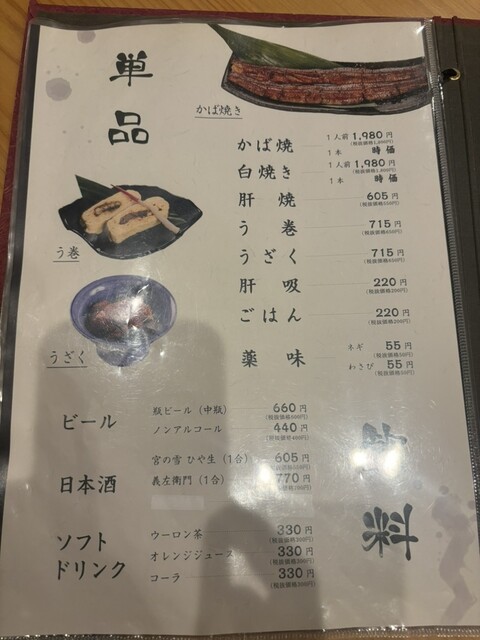 単品
かば焼き
かば焼 1人前 1,980円
(税抜価格1,800円)
1本 時価
白焼き 1人前 1,980円
(税抜価格1,800円)
1本 時価
肝焼 605円
(税抜価格550円)
う巻 715円
(税抜価格650円)
うざく 715円
(税抜価格650円)
肝吸 220円
(税抜価格200円)
ごはん 220円
(税抜価格200円)
薬味 ネギ 55円
(税抜価格50円)
わさび 55円
(税抜価格50円)
う巻
うざく
飲料
ビール
瓶ビール(中瓶) 660円
(税抜価格600円)
ノンアルコール 440円
(税抜価格400円)
日本酒
宮の雪 ひや生(1合) 605円
義左衛門(1合) 770円
(税抜価格700円)
ソフトドリンク
ウーロン茶 330円
(税抜価格300円)
オレンジジュース 330円
(税抜価格300円)
コーラ 330円
(税抜価格300円)